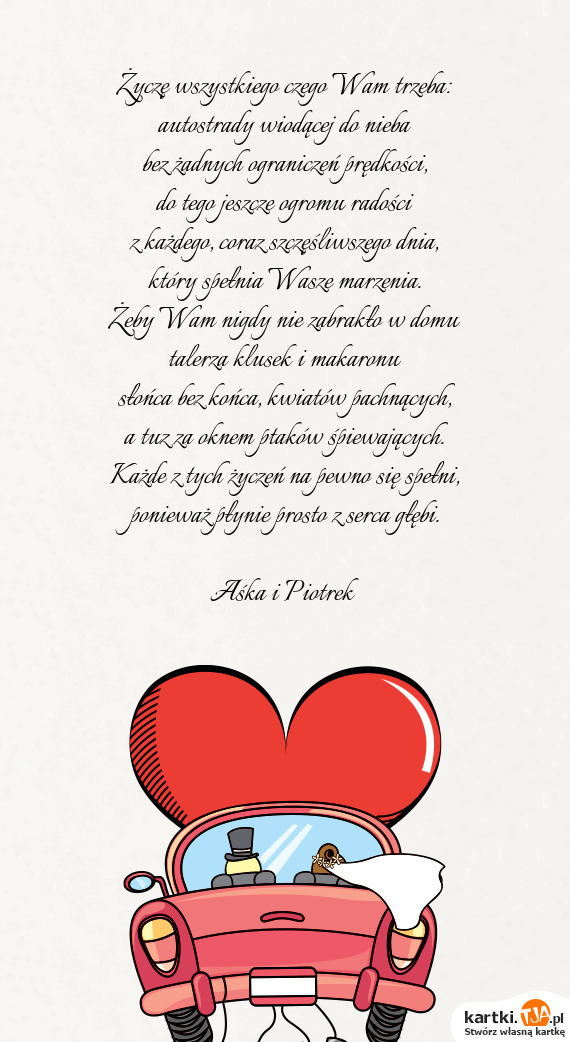 Życzę wszystkiego czego Wam trzeba:
autostrady wiodącej do nieba
bez żadnych ograniczeń prędkości,
do tego jeszcze ogromu radości
z każdego, coraz szczęśliwszego dnia,
który spełnia Wasze marzenia.
Żeby Wam nigdy nie zabrakło w domu
talerza klusek i makaronu
słońca bez końca, kwiatów pachnących,
a tuz za oknem ptaków śpiewających.
Każde z tych życzeń na pewno się spełni,
ponieważ płynie prosto z serca głębi.
Aśka i Piotrek
kartki.TJA.pl
Stwórz własną kartkę